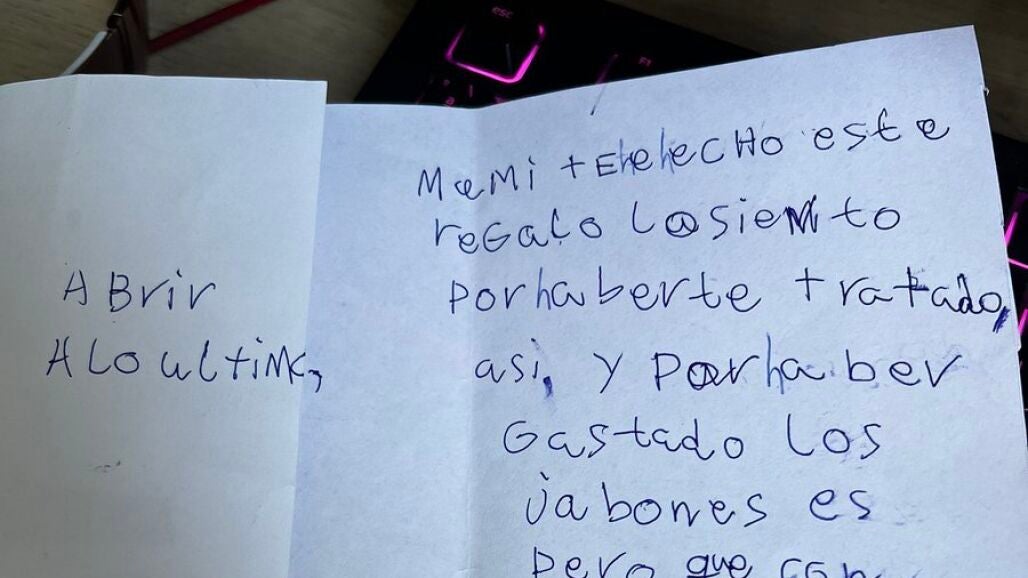 esc
F1
ABrir
A LO ULtiMo,
MaMi tE he hecHo este
reGaLo Lo siento
por haberte tratado,
asi, y por haber
Gastado Los
jabones es
pero que con